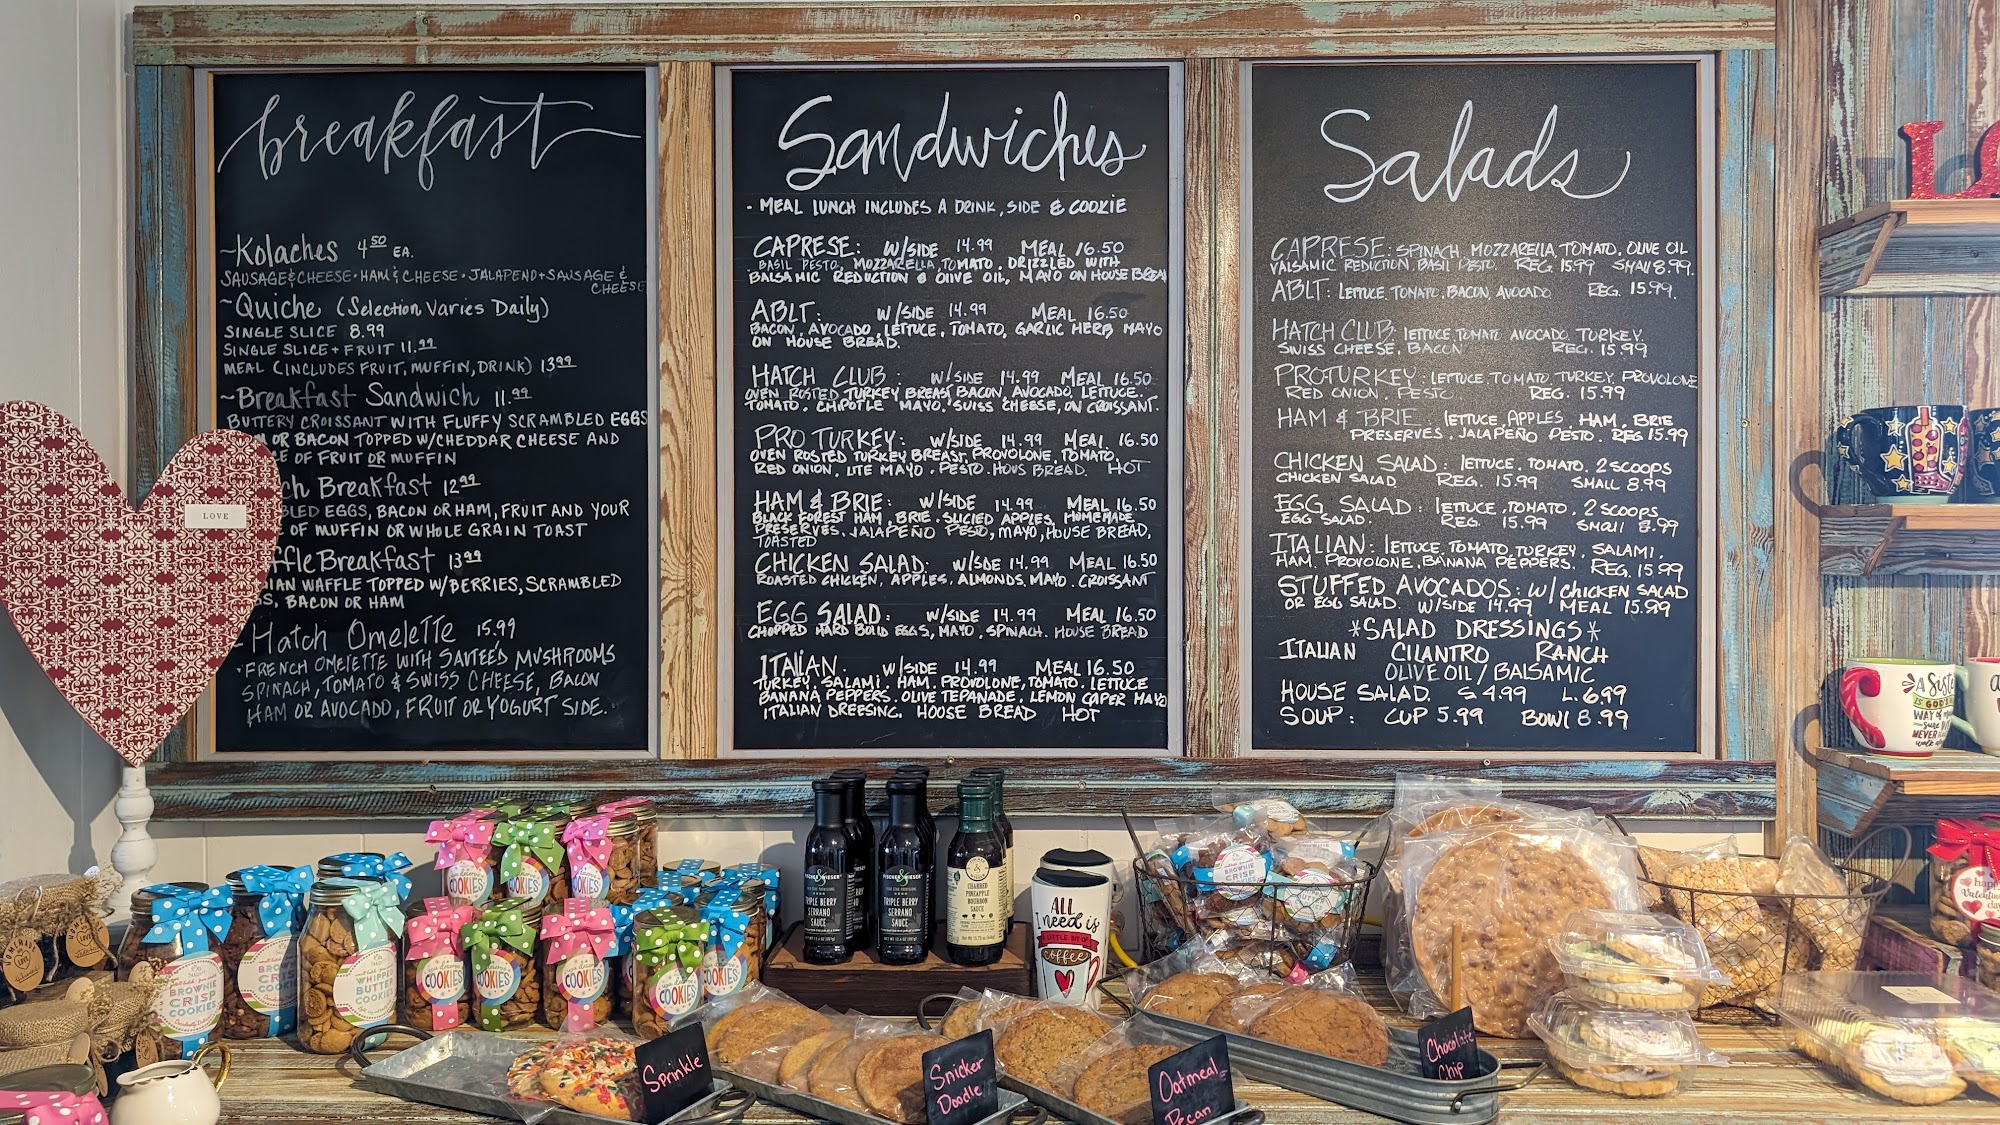 breakfast
~Kolaches 4.50 EA.
SAUSAGE & CHEESE · HAM & CHEESE · JALAPENO + SAUSAGE &
CHEESE
~Quiche (Selection Varies Daily)
SINGLE SLICE 8.99
SINGLE SLICE + FRUIT 11.99
MEAL (INCLUDES FRUIT, MUFFIN, DRINK) 13.99
~Breakfast Sandwich 11.99
BUTTERY CROISSANT WITH FLUFFY SCRAMBLED EGGS
OR BACON TOPPED W/CHEDDAR CHEESE AND
OF FRUIT OR MUFFIN
Breakfast 12.99
EGGS, BACON OR HAM, FRUIT AND YOUR
OF MUFFIN OR WHOLE GRAIN TOAST
Breakfast 13.99
WAFFLE TOPPED W/BERRIES, SCRAMBLED
BACON OR HAM
Hatch Omelette 15.99
FRENCH OMELETTE WITH SAUTEED MUSHROOMS
SPINACH, TOMATO & SWISS CHEESE, BACON
HAM OR AVOCADO, FRUIT OR YOGURT SIDE.
Sandwiches
· MEAL LUNCH INCLUDES A DRINK, SIDE & COOKIE
CAPRESE: W/SIDE 14.99 MEAL 16.50
BASIL PESTO, MOZZARELLA, TOMATO, DRIZZLED WITH
BALSAMIC REDUCTION & OLIVE OIL, MAYO ON HOUSE BREAD
ABLT: W/SIDE 14.99 MEAL 16.50
BACON, AVOCADO, LETTUCE, TOMATO, GARLIC HERB MAYO
ON HOUSE BREAD.
HATCH CLUB: W/SIDE 14.99 MEAL 16.50
OVEN ROSTED TURKEY BREAST BACON, AVOCADO, LETTUCE.
TOMATO. CHIPOTLE MAYO, SUISS CHEESE, ON CROISSANT.
PRO TURKEY: W/SIDE 14.99 MEAL 16.50
OVEN ROSTED TURKEY BREAST, PROVOLONE, TOMATO,
RED ONION, LITE MAYO. PESTO. HOUS BREAD. HOT
HAM & BRIE: W/SIDE 14.99 MEAL 16.50
BLACK FOREST HAM, BRIE. SLICIED APPLES, HOMEMADE
PRESERVES. JALAPEÑO PESTO, MAYO, HOUSE BREAD,
TOASTED
CHICKEN SALAD: W/SIDE 14.99 MEAL 16.50
ROASTED CHICKEN, APPLES, ALMONDS, MAYO. CROISSANT
EGG SALAD: W/SIDE 14.99 MEAL 16.50
CHOPPED HARD BOILD EGGS, MAYO, SPINACH. HOUSE BREAD
ITALIAN. W/SIDE 14.99 MEAL 16.50
TURKEY, SALAMI, HAM, PROVOLONE, TOMATO, LETTUCE
BANANA PEPPERS. OLIVE TEPANADE, LEMON CAPER MAYO
ITALIAN DREESING. HOUSE BREAD HOT
Salads
CAPRESE: SPINACH, MOZZARELLA, TOMATO, OLIVE OIL
VALSAMIC REDUCTION, BASIL PESTO. REG. 15.99 SMALL 8.99.
ABLT: LETTUCE, TOMATO, BACON, AVOCADO REG. 15.99.
HATCH CLUB: LETTUCE, TOMATO AVOCADO, TURKEY.
SWISS CHEESE, BACON REG. 15.99
PROTURKEY: LETTUCE, TOMATO, TURKEY, PROVOLONE
RED ONION, PESTO REG. 15.99
HAM & BRIE LETTUCE, APPLES, HAM, BRIE
PRESERVES, JALAPEÑO PESTO. REG 15.99
CHICKEN SALAD: LETTUCE, TOMATO. 2 SCOOPS
CHICKEN SALAD REG. 15.99 SMALL 8.99
EGG SALAD: LETTUCE, TOMATO, 2 SCOOPS
EGG SALAD. REG. 15.99 SMALL 8.99
ITALIAN: LETTUCE, TOMATO, TURKEY, SALAMI,
HAM, PROVOLONE, BANANA PEPPERS. REG. 15.99
STUFFED AVOCADOS: W/CHICKEN SALAD
OR EGG SALAD. W/SIDE 14.99 MEAL 15.99
*SALAD DRESSINGS*
ITALIAN CILANTRO RANCH
OLIVE OIL/BALSAMIC
HOUSE SALAD. S 4.99 L. 6.99
SOUP: CUP 5.99 BOWL 8.99
LOVE
A Sister
IS GOD'S
WAY of
NEVER
walk
BROWNIE
CRISP
COOKIES
WHIPPED
BUTTER
COOKIES
COOKIES
COOKIES
COOKIES
COOKIES
COOKIES
FISCHER & WIESER
TRIPLE BERRY
SERRANO
SAUCE
TRIPLE BERRY
SERRANO
SAUCE
CHARRED
PINEAPPLE
BOURBON
SAUCE
ALL
I need is
A LITTLE BIT OF
coffee
BROWNIE
CRISP
happy
Valentine's
day
Sprinkle
Snicker
Doodle
Oatmeal
Pecan
Chocolate
Chip